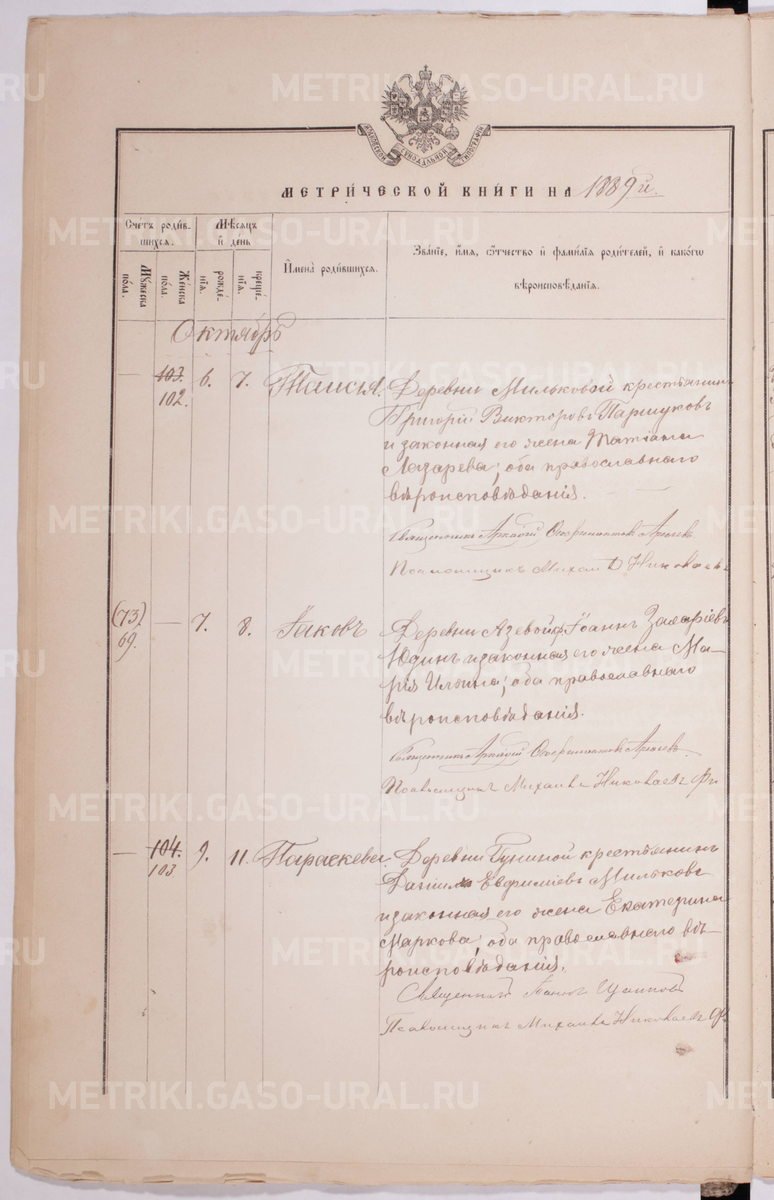 METRIKI.GASO-URAL.RU
МЕТРИ́ЧЕСКОЙ КНИ́ГИ НА 1889й.
Счетъ роди́вшихся.
Мѣсяцъ и҆ де́нь
Му́жеска по́ла.
Же́нска по́ла.
рожде́нїя.
креще́нїя.
И҆мена̀ роди́вшихся.
Зва́нїе, и҆́мя, ѻ҆́тчество и҆ фами́лїя роди́телей, и҆ како́гѡ
вѣроисповѣ́данїя.
Октябрь
— 103. 102. 6. 7. Таисія. Деревни Мильковой крестьянинъ
Григорій Викторовъ Паршуковъ
и законная его жена Татіана
Лазарева; оба православнаго
вѣроисповѣданія.
Священникъ Аркадій
Псаломщикъ Михаилъ Николаевъ
(73) 69. — 7. 8. Іаковъ Деревни Азевой Іоаннъ Захаріевъ
Юдинъ и законная его жена Ма-
рія Ильина; оба православнаго
вѣроисповѣданія.
Священникъ Аркадій
Псаломщикъ Михаилъ Николаевъ
— 104. 103 9. 11. Параскева. Деревни Гуниной крестьянинъ
Даніилъ Евфиміевъ Мильковъ
и законная его жена Екатерина
Маркова; оба православнаго вѣ-
роисповѣданія.
Священникъ
Псаломщикъ Михаилъ Николаевъ